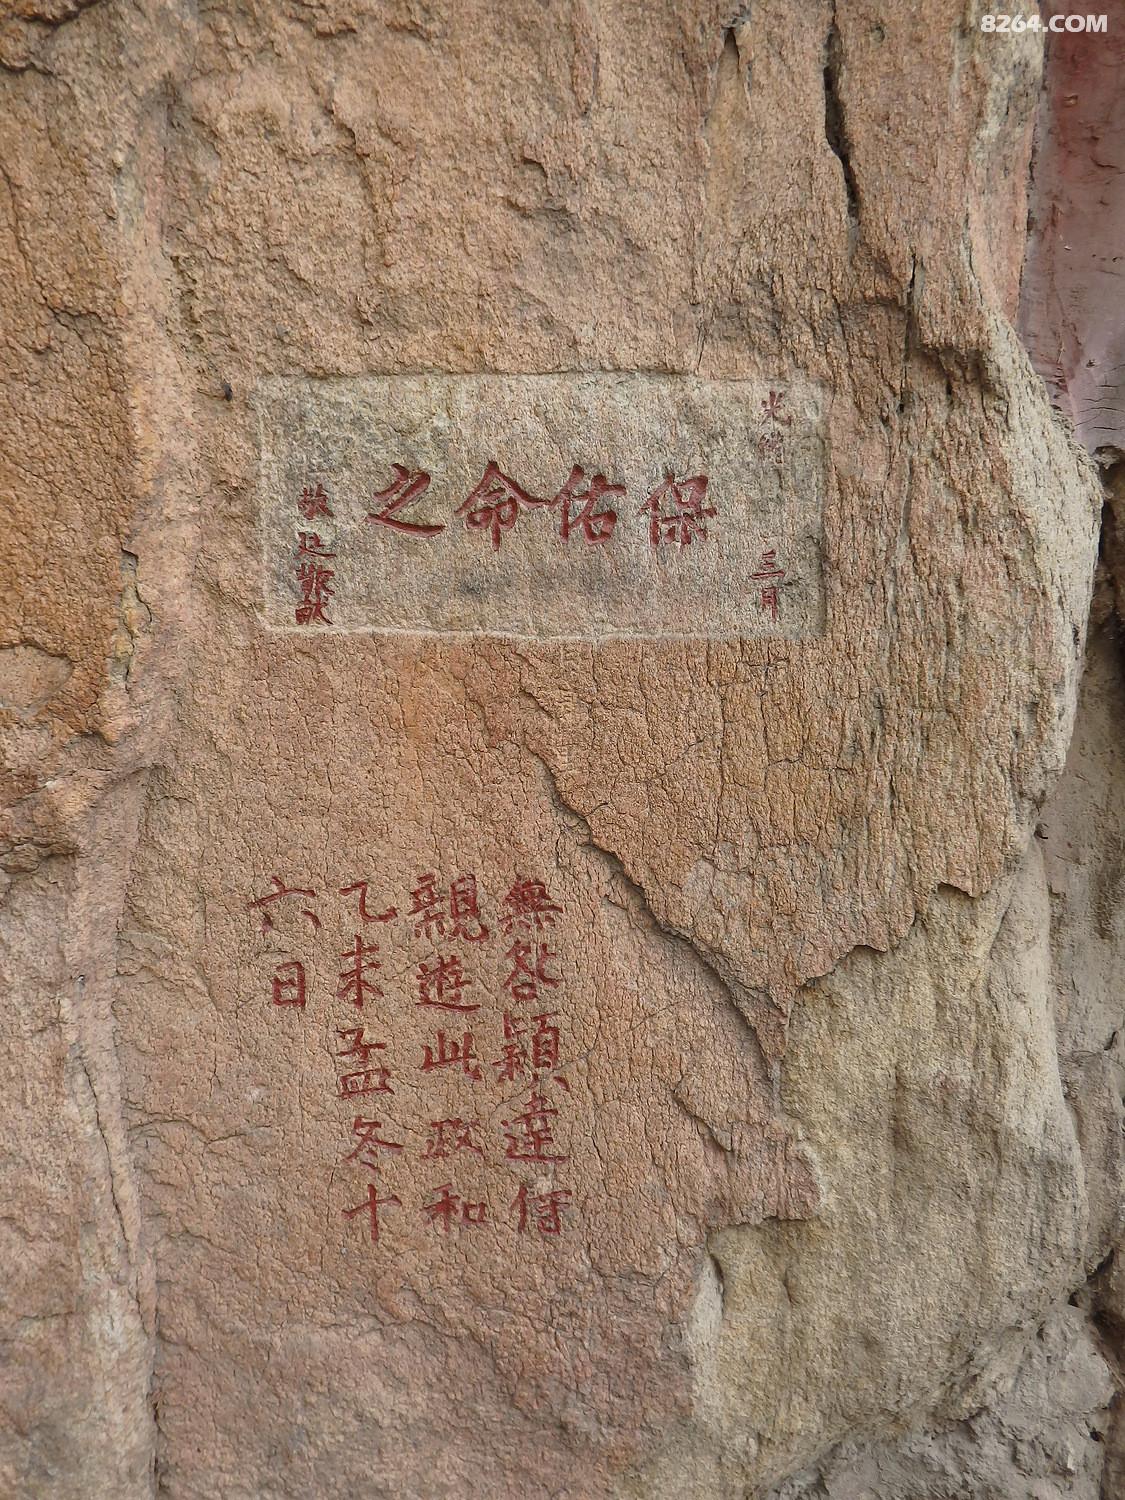 8264.COM
光緒 三月
保佑命之
敬
無咎穎達侍
親遊此政和
乙未孟冬十
六日